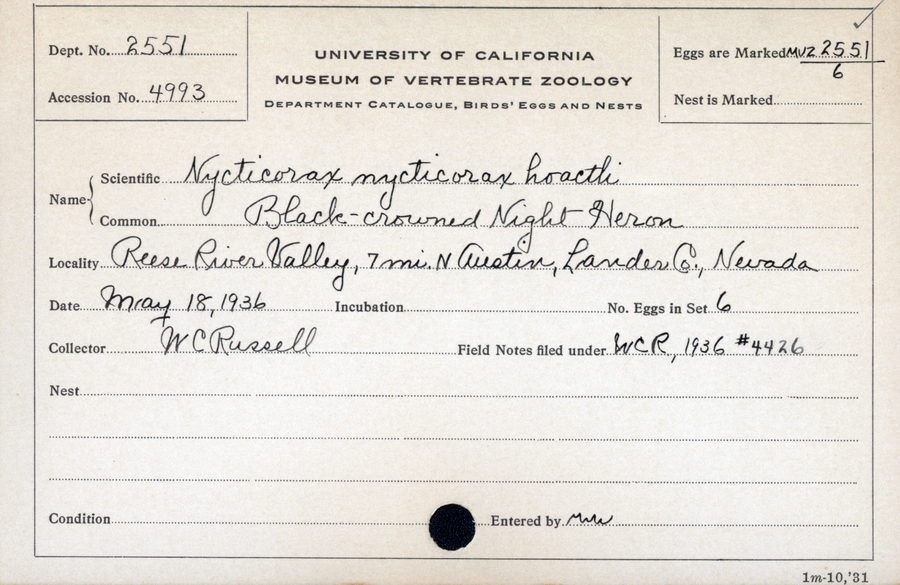 Dept. No. 2551
UNIVERSITY OF CALIFORNIA
MUSEUM OF VERTEBRATE ZOOLOGY
DEPARTMENT CATALOGUE, BIRDS' EGGS AND NESTS
Eggs are Marked MVZ 2551
6
Accession No. 4993
Nest is Marked
Name
Scientific Nycticorax nycticorax hoactli
Common Black-crowned Night Heron
Locality Reese River Valley, 7 mi. N Austin, Lander Co., Nevada
Date May 18, 1936 Incubation No. Eggs in Set 6
Collector W C Russell Field Notes filed under WCR, 1936 #4426
Nest
Condition Entered by
1m-10,'31